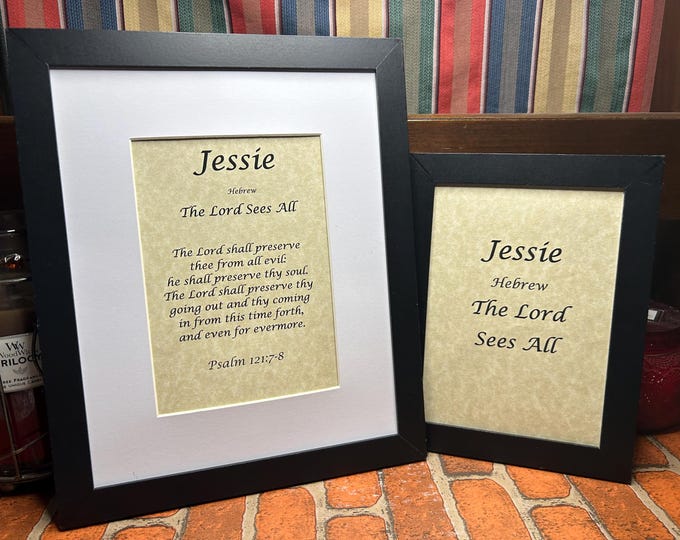 Jessie
Hebrew
The Lord Sees All
The Lord shall preserve
thee from all evil:
he shall preserve thy soul.
The Lord shall preserve thy
going out and thy coming
in from this time forth,
and even for evermore.
Psalm 121:7-8
Jessie
Hebrew
The Lord
Sees All
WW
WOODWICK
TRILOGY